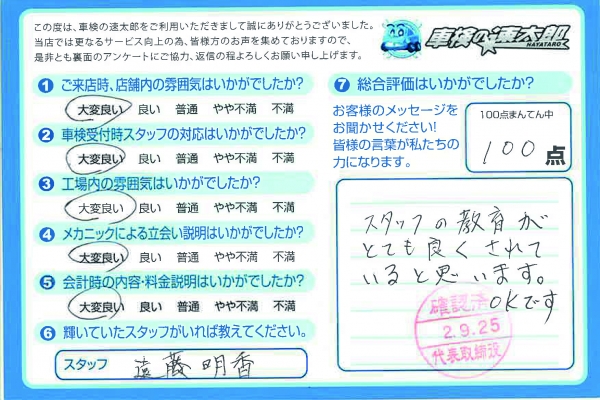 この度は、車検の速太郎をご利用いただきまして誠にありがとうございました。
当店では更なるサービス向上の為、皆様方のお声を集めておりますので、
是非とも裏面のアンケートにご協力、返信の程よろしくお願い申し上げます。
車検の速太郎
HAYATARO
1 ご来店時、店舗内の雰囲気はいかがでしたか?
大変良い 良い 普通 やや不満 不満
2 車検受付時スタッフの対応はいかがでしたか?
大変良い 良い 普通 やや不満 不満
3 工場内の雰囲気はいかがでしたか?
大変良い 良い 普通 やや不満 不満
4 メカニックによる立会い説明はいかがでしたか?
大変良い 良い 普通 やや不満 不満
5 会計時の内容・料金説明はいかがでしたか?
大変良い 良い 普通 やや不満 不満
6 輝いていたスタッフがいれば教えてください。
スタッフ 遠藤明香
7 総合評価はいかがでしたか?
お客様のメッセージを
お聞かせください!
皆様の言葉が私たちの
力になります。
100点まんてん中
100点
スタッフの教育が
とても良くされて
いると思います。
OKです
確認済
2.9.25
代表取締役